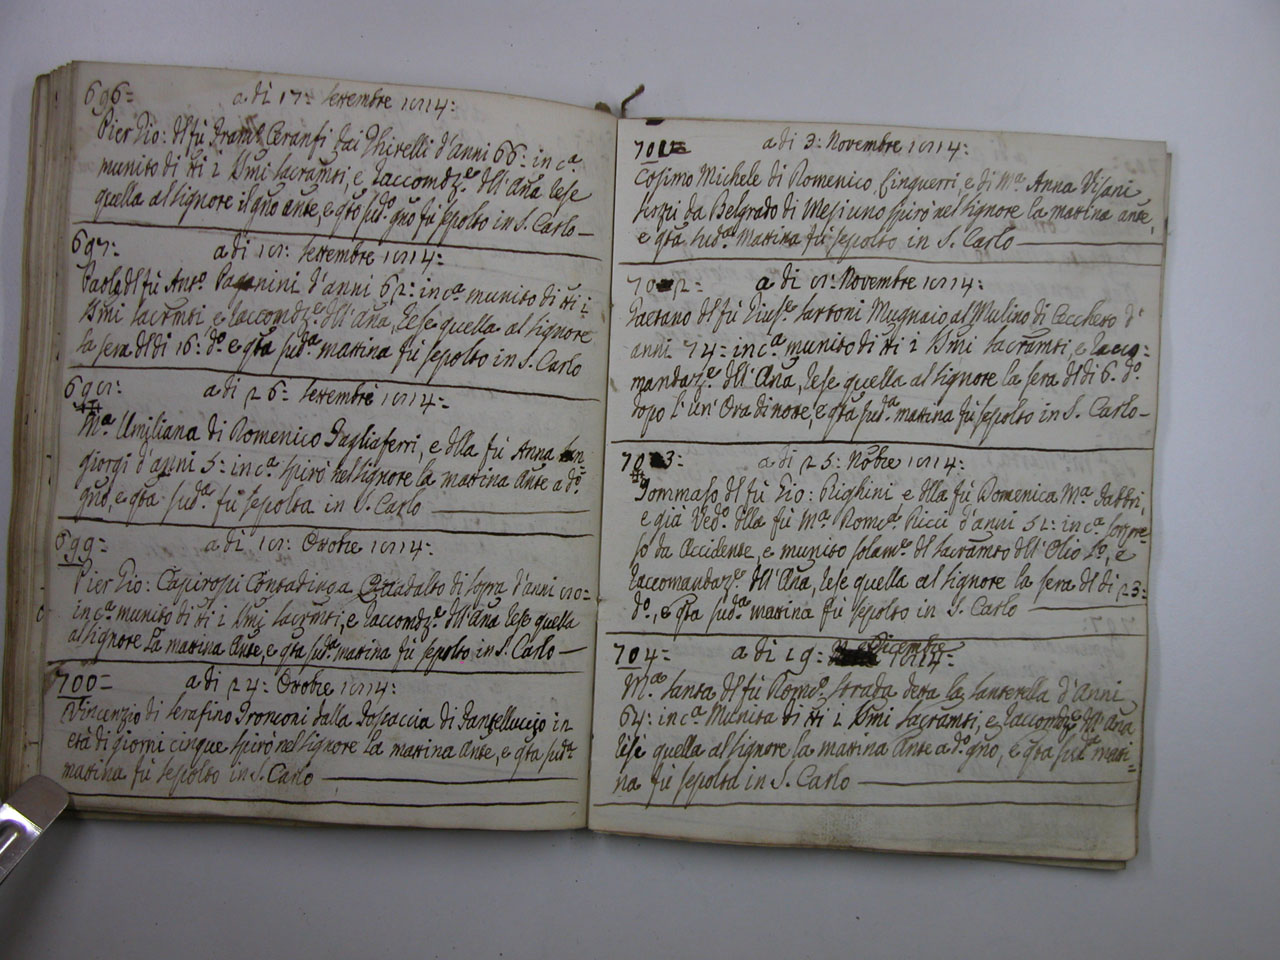 696=
a di 17: Settembre 1814:
Pier Gio: del fù Ceranfi dai Ghirelli d'anni 66: in ca.
munito di tti i SSmi Sacramti, e Raccomdze. dell'Aña rese
quella al Signore il gño ante, e qta sudo. gño fù sepolto in S. Carlo
697:
a di 18: Settembre 1814:
Paolo del fù Anto. Paganini d'anni 62: in ca. munito di tti i
SSmi Sacramti, e Raccomdze. dell'Aña, rese quella al Signore
la sera del di 16: do. e qta suda. mattina fù sepolto in S. Carlo
698:
a di 26: Settembre 1814:
Ma. Umiliana di Domenico Tagliaferri, e della fù Anna
giorgi d'anni 5: in ca. spirò nel Signore la mattina Ante a do.
gño, e qta suda. fù sepolta in S. Carlo
699=
a di 18: Ottobre 1814:
Pier Gio: Contadino a di sopra d'anni 80=
in ca. munito di tti i SSmi Sacramti, e Raccomdze dell'Aña rese quella
al Signore la mattina Ante, e qta suda. mattina fù sepolto in S. Carlo
700=
a di 24: Ottobre 1814:
Vincenzio di Serafino Tronconi dalla di Fantelluccio in
età di giorni cinque spirò nel Signore la mattina Ante, e qta suda.
mattina fù sepolto in S. Carlo
701=
a di 3: Novembre 1814:
Cosimo Michele di Domenico Cinguerri, e di Ma. Anna Visani
da Belgrado di Mesi uno spirò nel Signore la mattina ante,
e qta suda. Mattina fù sepolto in S. Carlo
702:
a di 8: Novembre 1814:
Gaetano del fù Giuse. Sartoni Mugnaio al Mulino di Cecchetto d'
anni 74= in ca. munito di tti i SSmi Sacramti, e Racco=
mandaze. dell'Aña, rese quella al Signore la sera del di 6. do.
dopo l'un'Ora di notte, e qta suda. mattina fù sepolto in S. Carlo
703:
a di 25: Nobre 1814:
Tommaso del fù Gio: Righini e della fù Domenica Ma. Fabbri,
e già Vedo. della fù Ma. Doma. Ricci d'anni 52: in ca. sorpre
so da Accidente, e munito solame. del Sacramto dell'Olio So, e
Raccomandaze. dell'Aña, rese quella al Signore la sera del di 23:
do., e qta suda. mattina fù sepolto in S. Carlo
704:
a di 19: Dicembre 1814:
Ma. Santa del fù Domo. Strada detta la Santerella d'Anni
64: in ca. Munita di tti i SSmi Sacramti, e Raccomdze dell'Aña
rese quella al Signore la mattina Ante a do. gño, e qta suda. matti=
na fù sepolta in S. Carlo